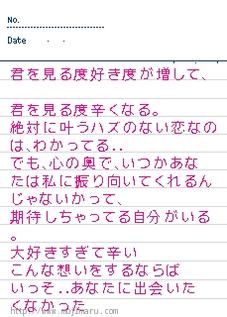 No.
Date . .
君を見る度好き度が増して、
君を見る度辛くなる。
絶対に叶うハズのない恋なの
は、わかってる..
でも、心の奥で、いつかあな
たは私に振り向いてくれるん
じゃないかって、
期待しちゃってる自分がいる
。
大好きすぎて辛い
こんな想いをするならば
いっそ..あなたに出会いた
くなかった
http://www.mojimaru.com